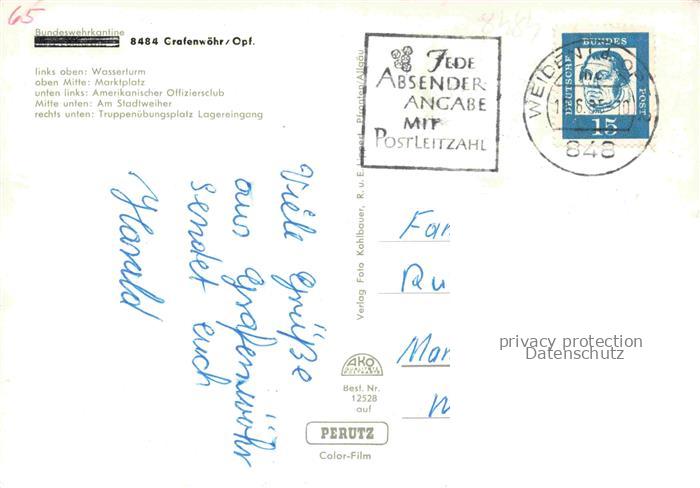 65
Bundeswehrkantine
8484 Grafenwöhr/Opf.
links oben: Wasserturm
oben Mitte: Marktplatz
unten links: Amerikanischer Offiziersclub
Mitte unten: Am Stadtweiher
rechts unten: Truppenübungsplatz Lagereingang
Viele Grüße
aus Grafenwöhr
sendet euch
Harald
Verlag Foto Kahlbauer, R. u. E. Lippert, Pfronten/Allgäu
JEDE
ABSENDER-
ANGABE
MIT
POSTLEITZAHL
WEIDEN
848
DEUTSCHE BUNDESPOST
15
Fam
Ru
Mar
AKO
Best. Nr.
12528
auf
PERUTZ
Color-Film
privacy protection
Datenschutz